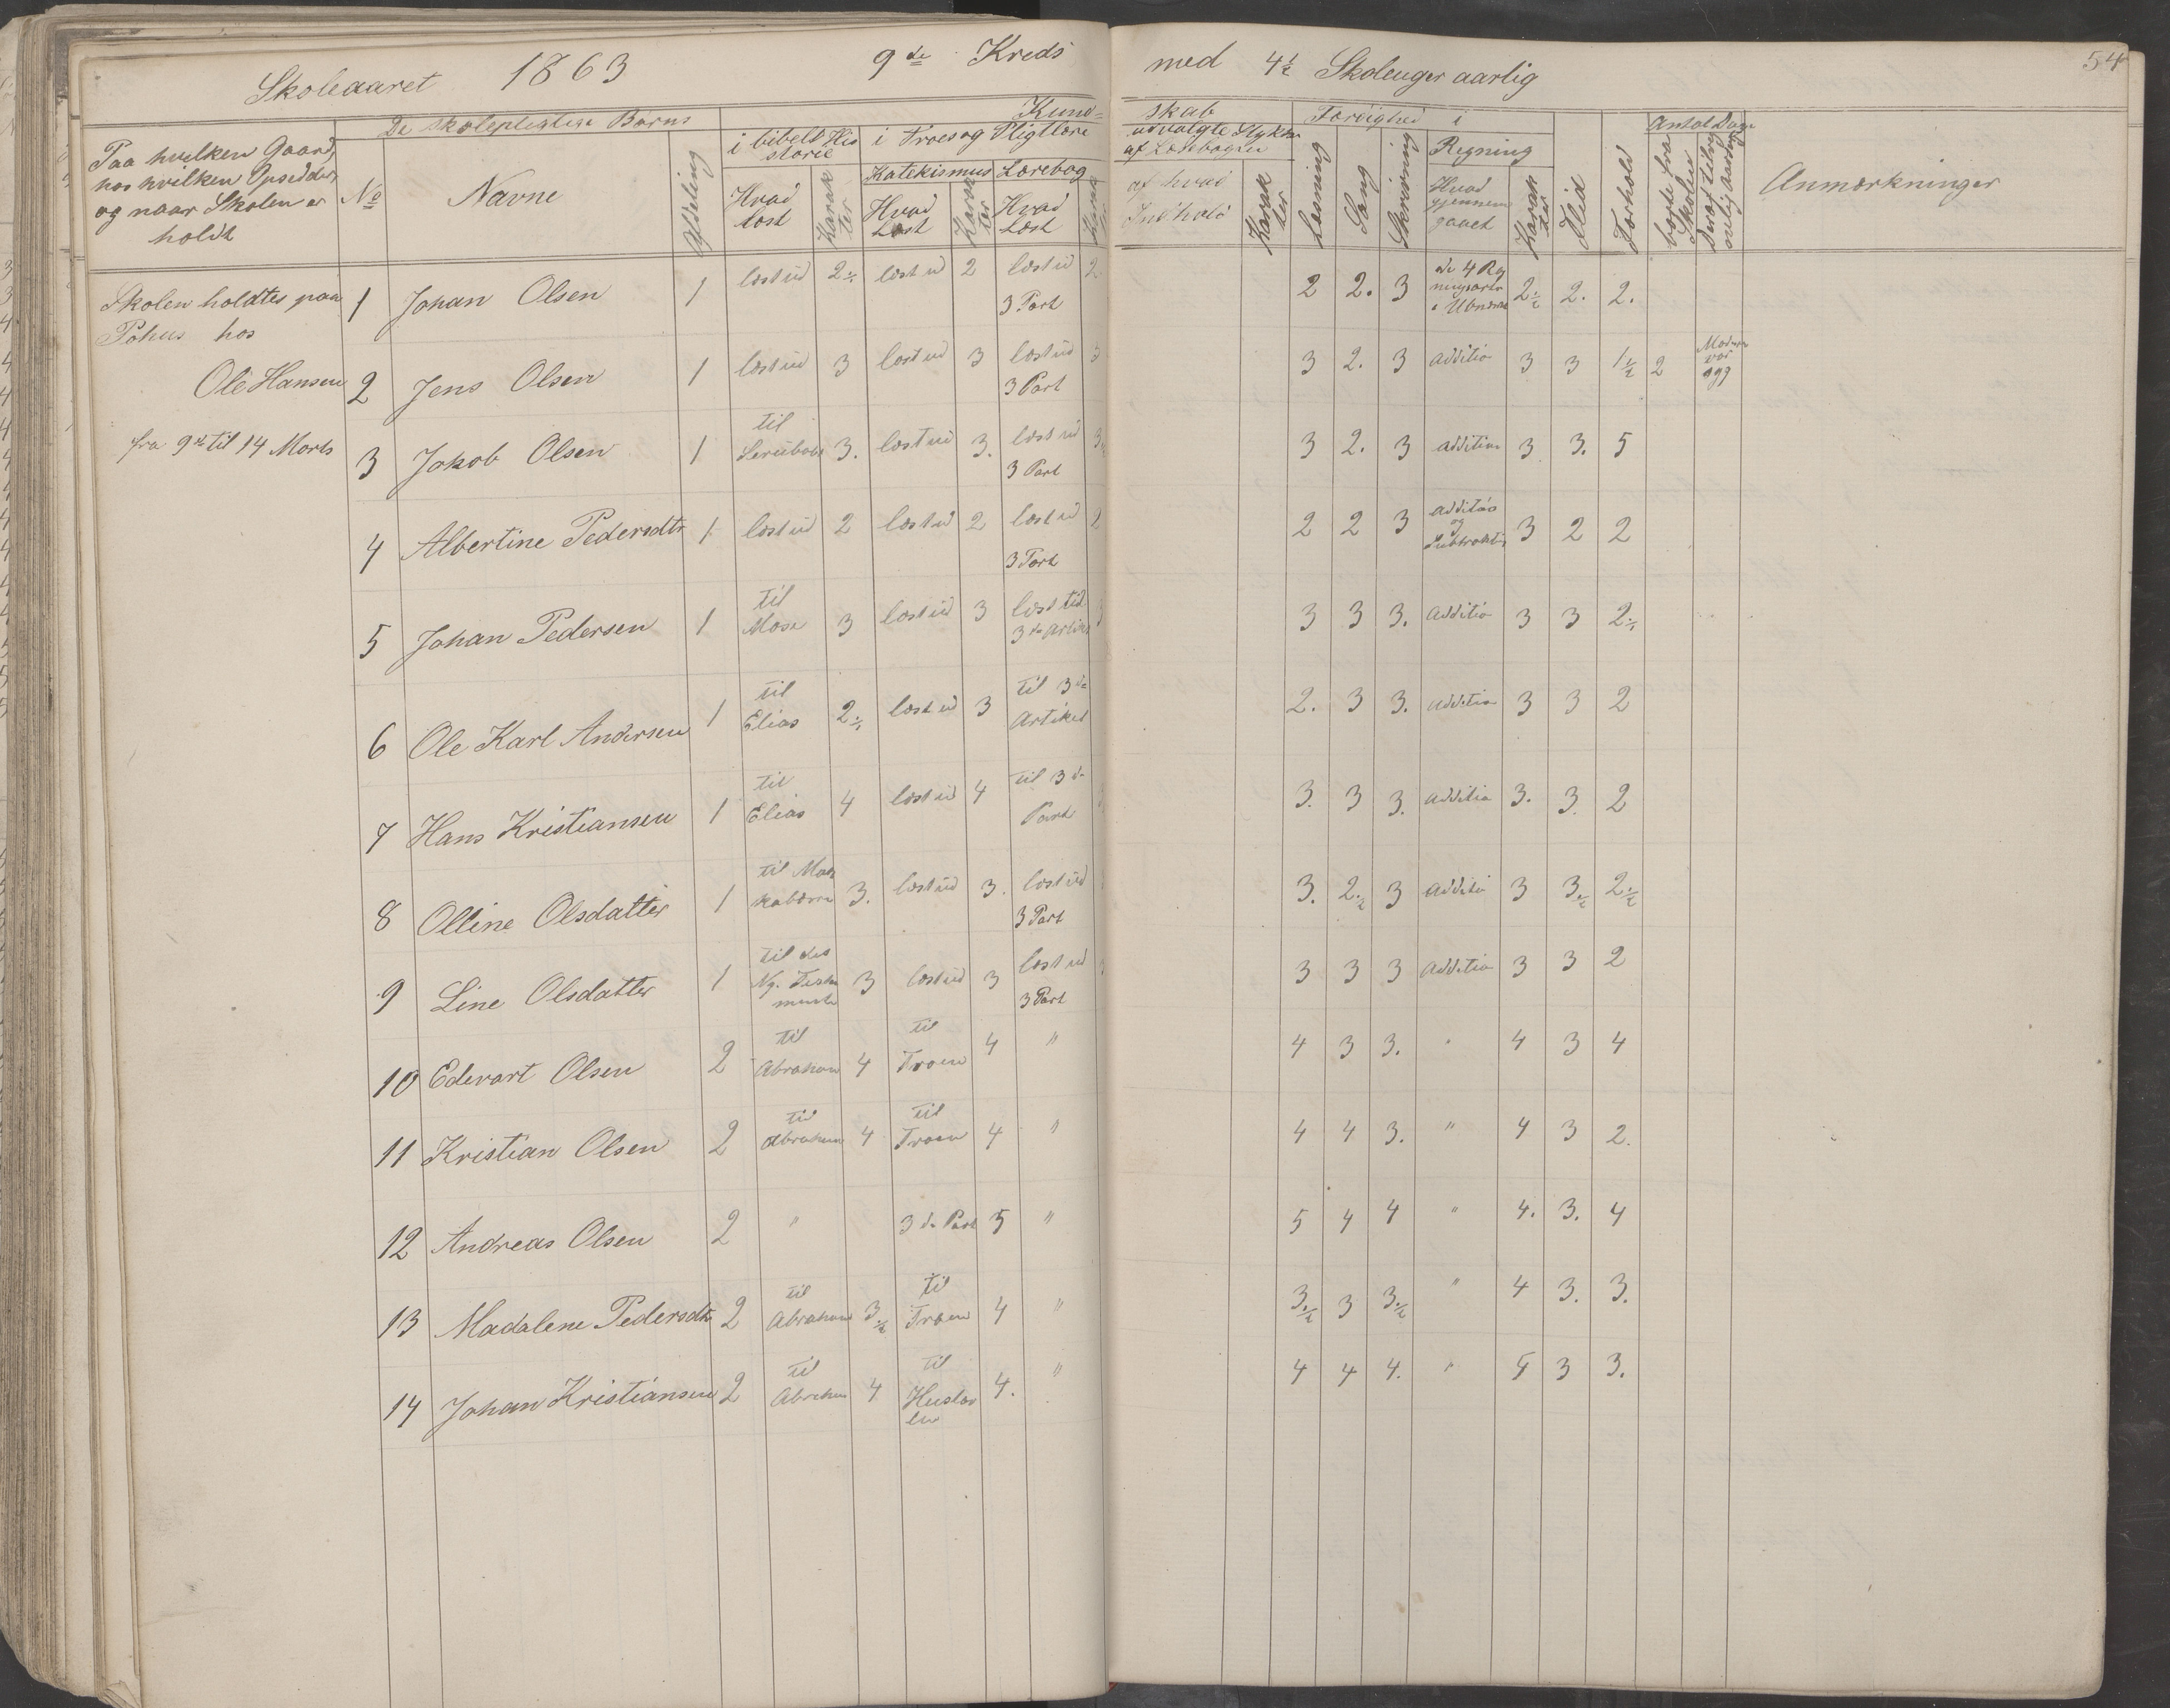 Skoleaaret 1863 9de Kreds med 4½ Skoleuger aarlig 54
De skolepligtige Børns Kund=
skab Færdighed i Antal Dage
Paa hvilken Gaard,
hos hvilken Opsidder,
og naar Skolen er
holdt
No Navne Afdeling
i bibelsk Historie i Troes og Pligtlære
Katekismus Lærebog
Hvad læst Karakter Hvad Læst Karakter Hvad Læst Karak
udvalgte Stykker
af Læsebogen
af hvad Indhold Karakter
Læsning Sang Skrivning Regning
Hvad gjennemgaaet Karakter Flid Forhold
borte fra Skolen Deraf
Anmærkninger
Skolen holdtes paa
hos
Ole Hansen
fra 9de til 14 Marts
1 Johan Olsen 1 læst ud 2 læst ud 2 læst ud 3 Part 2 2 2. 3 de 4 2 2. 2.
2 Jens Olsen 1 læst ud 3 læst ud 3 læst ud 3 Part 3 3 2. 3 additio 3 3 1½ 2 Moderen var
3 Jakob Olsen 1 til 3. læst ud 3. læst ud 3 Part 3 3 2. 3 addition 3 3. 5
4 Albertine Pedersdtr 1 læst ud 2 læst ud 2 læst ud 3 Part 2 2 2 3 additio og 3 2 2
5 Johan Pedersen 1 til Mose 3 læst ud 3 læst til 3de Artikel 3 3 3. additio 3 3 2
6 Ole Karl Andersen 1 til Elias 2 læst ud 3 til 3de Artikel 2. 3 3. additio 3 3 2
7 Hans Kristiansen 1 til Elias 4 læst ud 4 til 3de Part 3. 3 3. additio 3. 3. 2
8 Olline Olsdatter 1 til 3. læst ud 3. læst ud 3 Part 3. 2.½ 3 additio 3 3.½ 2.½
9 Line Olsdatter 1 til det Ny. 3 læst ud 3 læst ud 3 Part 3 3 3 additio 3 3 2
10 Edevart Olsen 2 til Abraham 4 til Troen 4 " 4 3 3. " 4 3 4
11 Kristian Olsen 2 til Abraham 4 til Troen 4 " 4 4 3. " 4 3 2.
12 Andreas Olsen 2 " 3de Part 5 " 5 4 4 " 4. 3. 4
13 Madalene Pedersdtr 2 til Abraham 3.½ til Troen 4 " 3.½ 3 3.½ " 4 3. 3.
14 Johan Kristiansen 2 til Abraham 4 til 4. " 4 4 4. " 3 3.